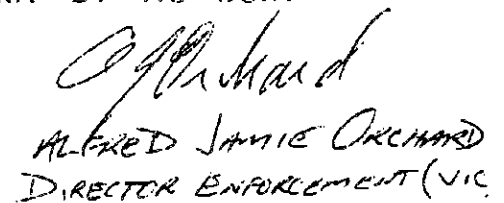 AJOrchard
ALFRED JAMIE ORCHARD
DIRECTOR ENFORCEMENT (VIC